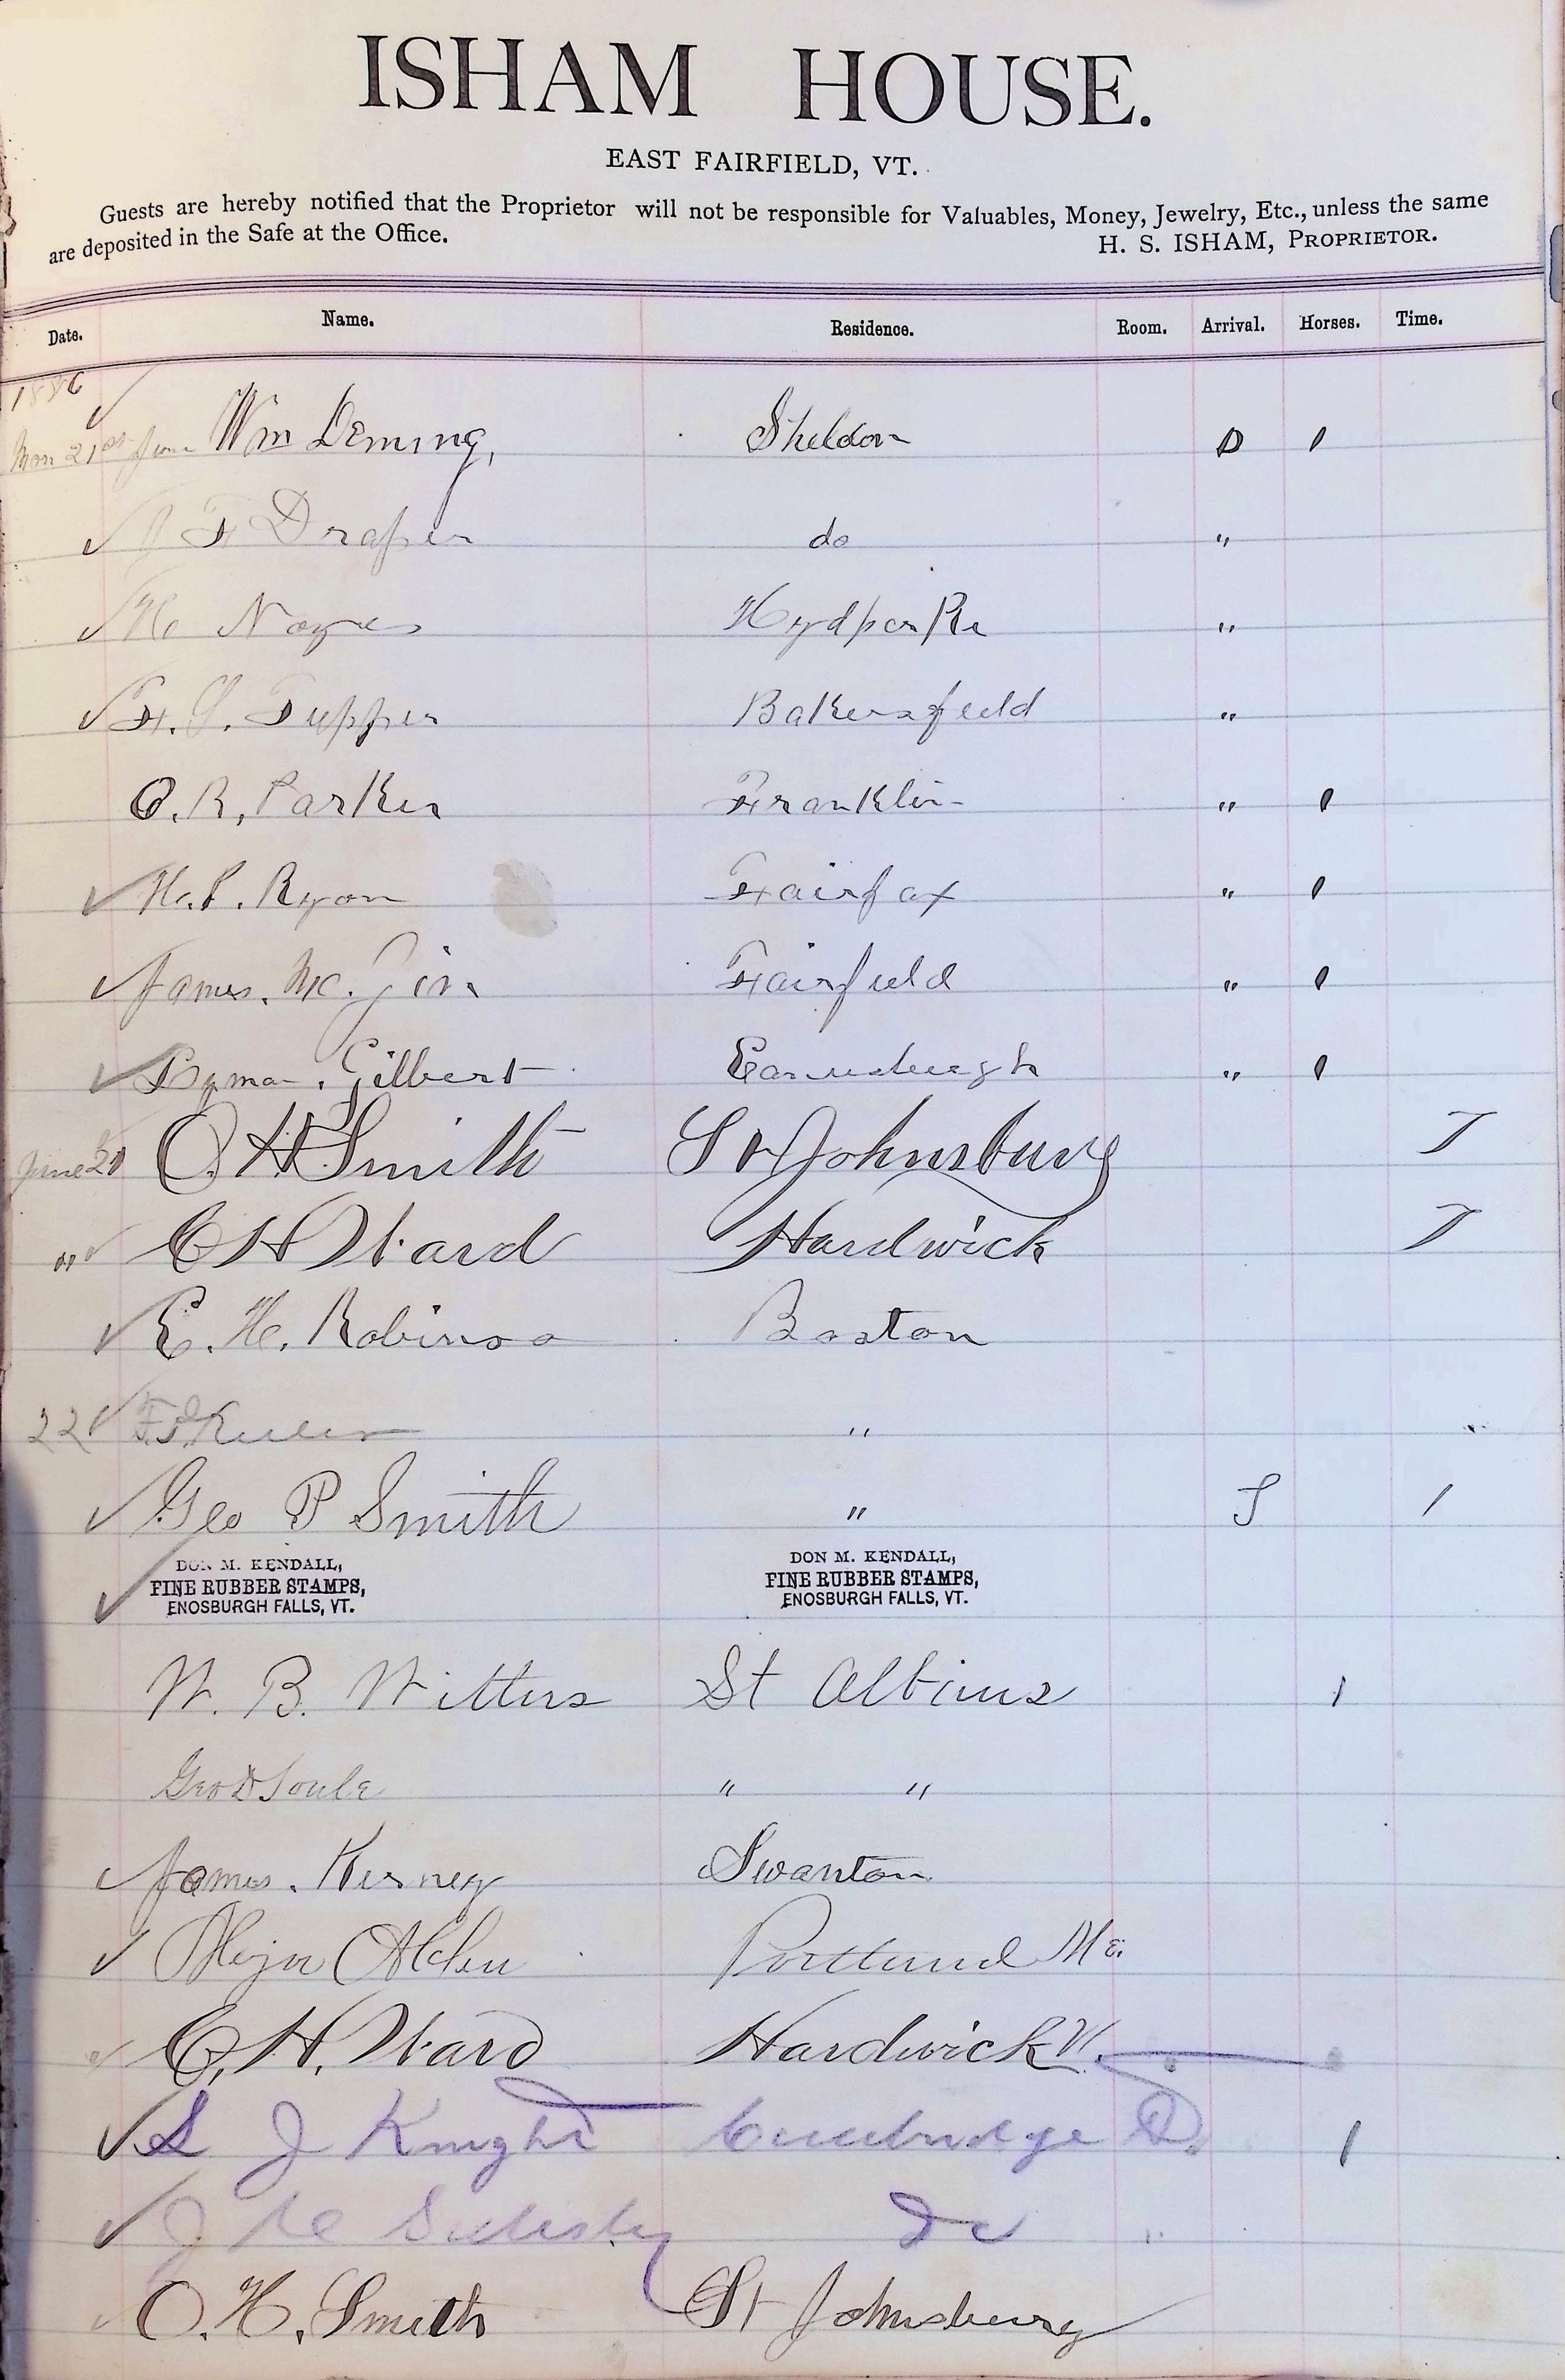 ISHAM HOUSE.
EAST FAIRFIELD, VT.
Guests are hereby notified that the Proprietor will not be responsible for Valuables, Money, Jewelry, Etc., unless the same
are deposited in the Safe at the Office. H. S. ISHAM, PROPRIETOR.
Date. Name. Residence. Room. Arrival. Horses. Time.
1886
Mon 21st June Wm Deming, Sheldon D 1
F Draper do "
Noyes Hydparke "
F. S. Tupper Bakersfield "
O. R. Parker Franklin " 1
H. P. Ryan Fairfax " 1
James. Mc. Gin Fairfield " 1
Lyman. Gilbert " 1
June 21 O. H Smith St Johnsbury T
" C H Ward Hardwick T
E. H. Robinson Boston
22 "
Geo P Smith " S 1
DON M. KENDALL, DON M. KENDALL,
FINE RUBBER STAMPS, FINE RUBBER STAMPS,
ENOSBURGH FALLS, VT. ENOSBURGH FALLS, VT.
W. B. Witters St Albans 1
Geo D Soule " "
James. Kerney Swanton
Alden Portland Me.
C. H. Ward Hardwick Vt.
S J Knight Cambridge D. 1
J Do "
O. H. Smith St Johnsbury